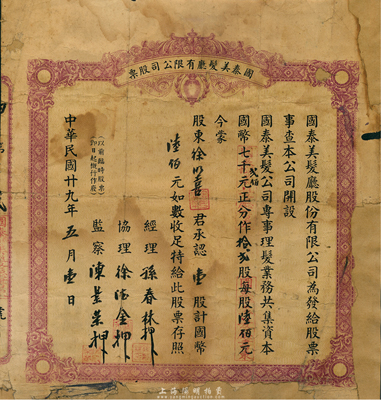 國泰美髮廳有限公司股票
國泰美髮廳股份有限公司為發給股票
事查本公司開設
國泰美髮公司專事理髮業務共集資本
國幣七千貳佰元正分作拾貳股每股陸佰元
今蒙
股東徐明喜君承認壹股計國幣
陸佰元如數收足特給此股票存照
經理孫春林押
協理徐錦金押
監察陳景榮押
(以前臨時股票
即日起概行作廢)
中華民國廿九年五月壹日
上海陽明拍賣